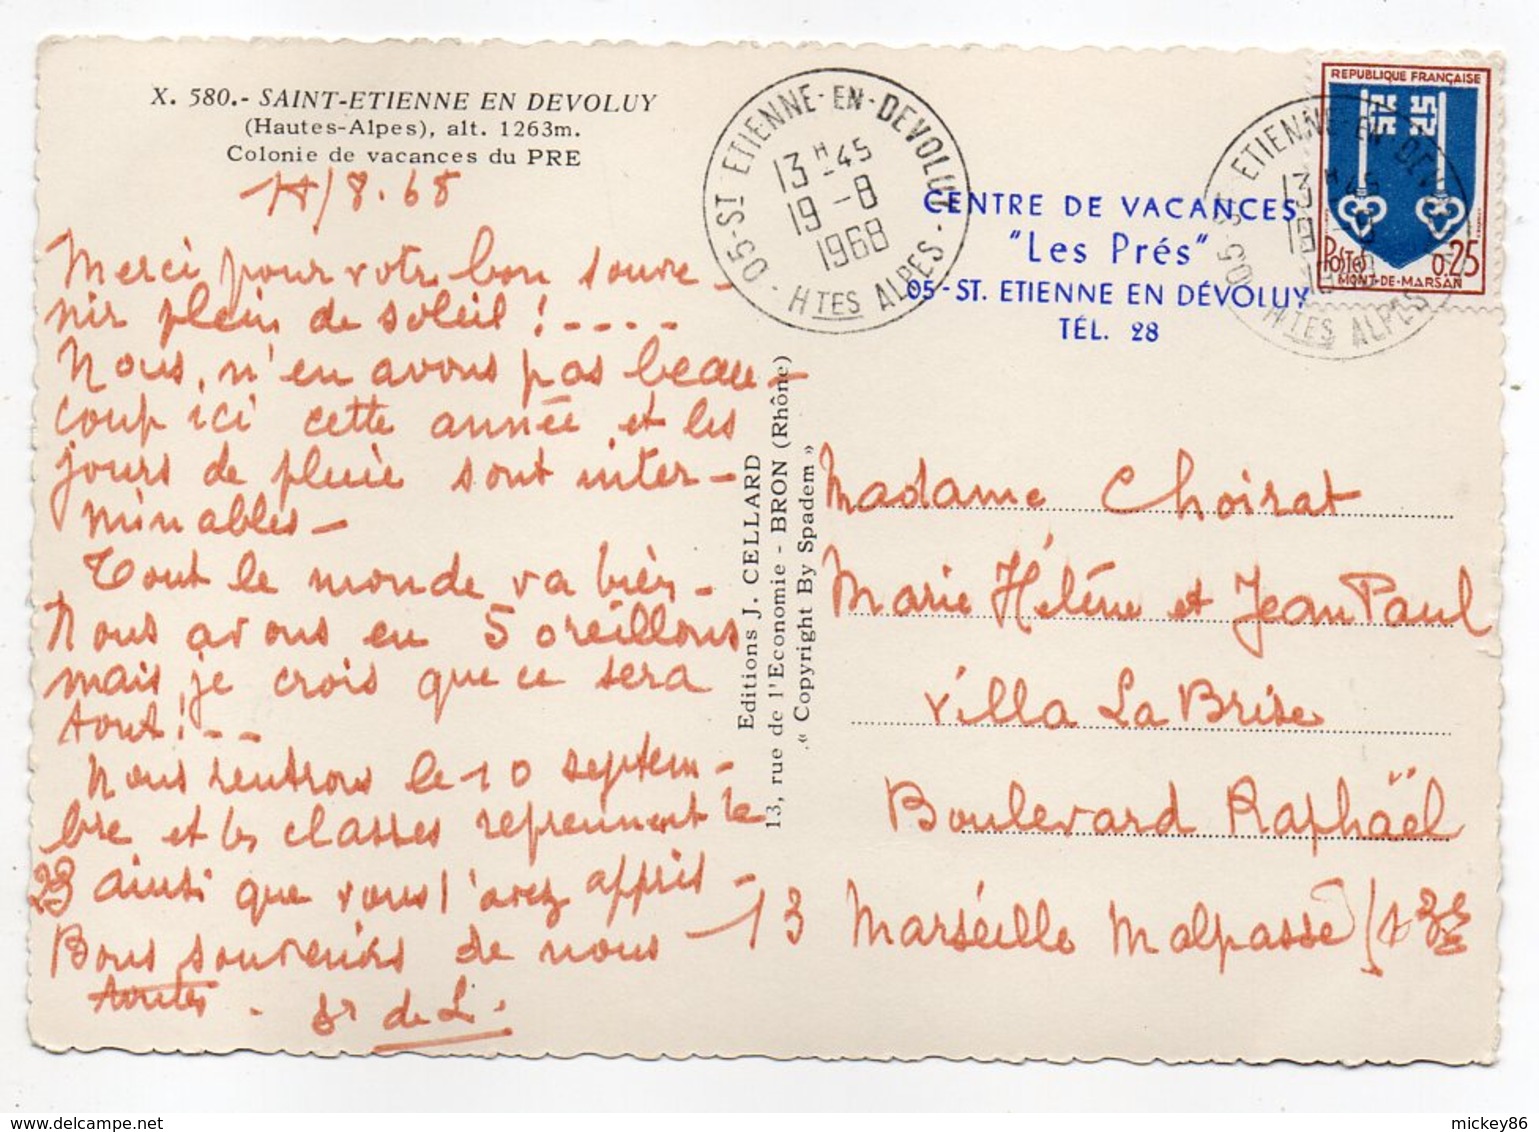 X. 580.- SAINT-ETIENNE EN DEVOLUY
(Hautes-Alpes), alt. 1263m.
Colonie de vacances du PRE
/8.68
Merci pour votre bon souve-
nir plein de soleil !----
Nous, n'en avons pas beau-
coup ici cette année et les
jours de pluie sont inter-
minables-
Tout le monde va bien-
Nous avons eu 5 oreillons
mais, je crois que ce sera
tout!--
Nous rentrons le 10 septem-
bre et les classes reprennent le
23 ainsi que vous l'avez appris-
Bons souvenirs de nous
toutes. Sr de L.
Editions J. CELLARD
13, rue de l'Economie - BRON (Rhône)
« Copyright By Spadem »
05-ST ETIENNE-EN-DEVOLUY
13H-45
19-8
1968
HTES ALPES
CENTRE DE VACANCES
"Les Prés"
05-ST. ETIENNE EN DÉVOLUY
TÉL. 28
REPUBLIQUE FRANÇAISE
POSTES 0,25
MONT-DE-MARSAN
05-ST ETIENNE-EN-DEV
13H45
HTES ALPES
Madame Choirat
Marie Hélène et Jean Paul
Villa La Brise
Boulevard Raphaël
13 Marseille Malpassé
mickey86